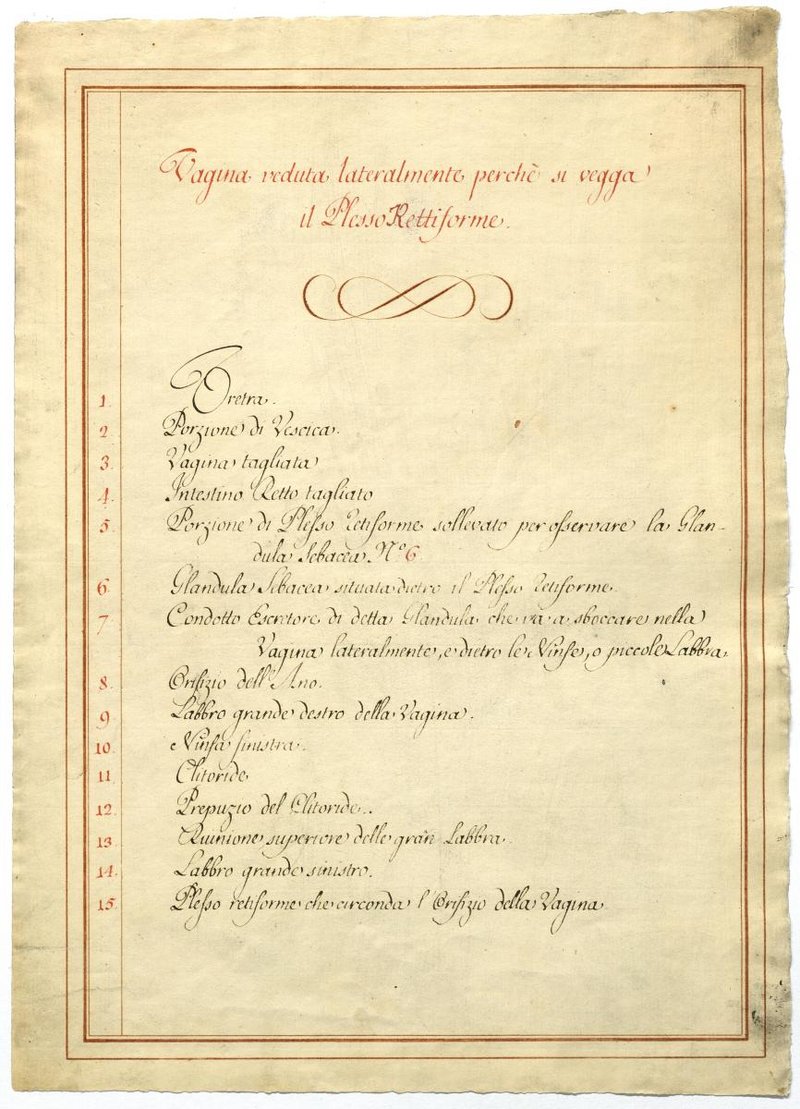 Vagina veduta lateralmente perchè si vegga
il Plesso Rettiforme.
1. Uretra.
2. Porzione di Vescica.
3. Vagina tagliata
4. Intestino Retto tagliato
5. Porzione di Plesso retiforme sollevato per osservare la Glan-
dula Sebacea N.º 6
6. Glandula Sebacea situata dietro il Plesso retiforme.
7. Condotto Escretore di detta Glandula che và a sboccare nella
Vagina lateralmente, e dietro le Ninfe, o piccole Labbra.
8. Orifizio dell'Ano.
9. Labbro grande destro della Vagina.
10. Ninfa sinistra.
11. Clitoride
12. Prepuzio del Clitoride.
13. Riunione superiore delle gran Labbra.
14. Labbro grande sinistro.
15. Plesso retiforme che circonda l'Orifizio della Vagina